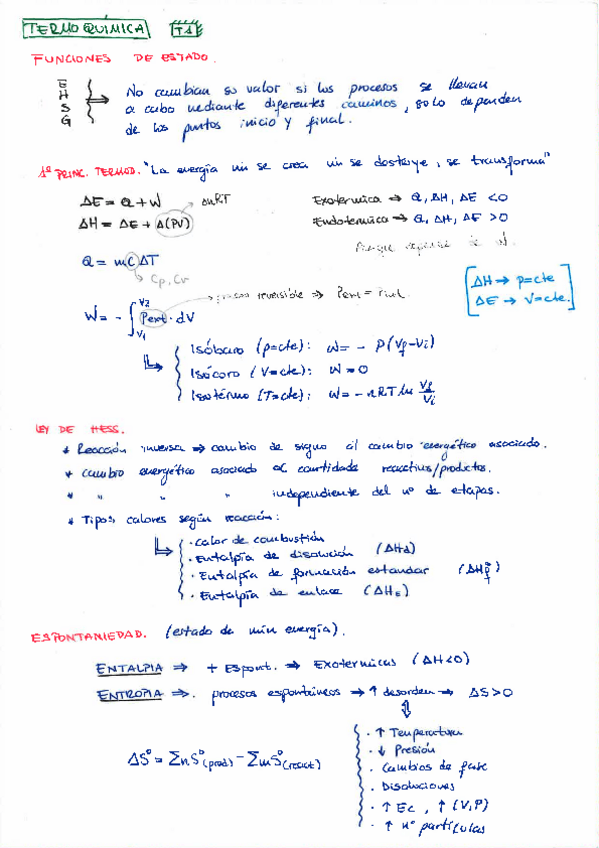 TERMOQUÍMICA T1
FUNCIONES DE ESTADO.
E
H
S
G
No cambian su valor si los procesos se llevan
a cabo mediante diferentes caminos, solo dependen
de los puntos inicio y final.
1º PRINC. TERMOD. "La energía ni se crea ni se destruye, se transforma"
ΔE = Q + W ΔnRT Exotérmica → Q, ΔH, ΔE < 0
ΔH = ΔE + Δ(PV) Endotérmica → Q, ΔH, ΔE > 0
Porque depende de W.
Q = mCΔT
Cp, Cv
[ΔH → p=cte
ΔE → V=cte.]
proceso reversible ⇒ Pext = Pint.
W = - ∫V1 V2 Pext · dV
Isóbaro (p=cte): W = - P(Vf - Vi)
Isócoro (V=cte): W = 0
Isotérmo (T=cte): W = - nRT ln Vf/Vi
LEY DE HESS.
* Reacción inversa ⇒ cambio de signo al cambio energético asociado.
* cambio energético asociado a cantidade reactivos/productos.
* " " " independiente del nº de etapas.
* Tipos calores según reacción:
· calor de combustión
· Entalpía de disolución (ΔHd)
· Entalpía de formación estandar (ΔHfº)
· Entalpía de enlace (ΔHE)
ESPONTANIEDAD. (estado de mín energía).
ENTALPIA ⇒ + Espont. → Exotermicas (ΔH<0)
ENTROPIA ⇒. procesos espontáneos → ↑ desorden → ΔS>0
· ↑ Temperatura
· ↓ Presión
· Cambios de fase
· Disoluciones
· ↑ Ec, ↑ (V,P)
· ↑ nº partículas
ΔSº = Σn Sº(prod) - Σm Sº(react)